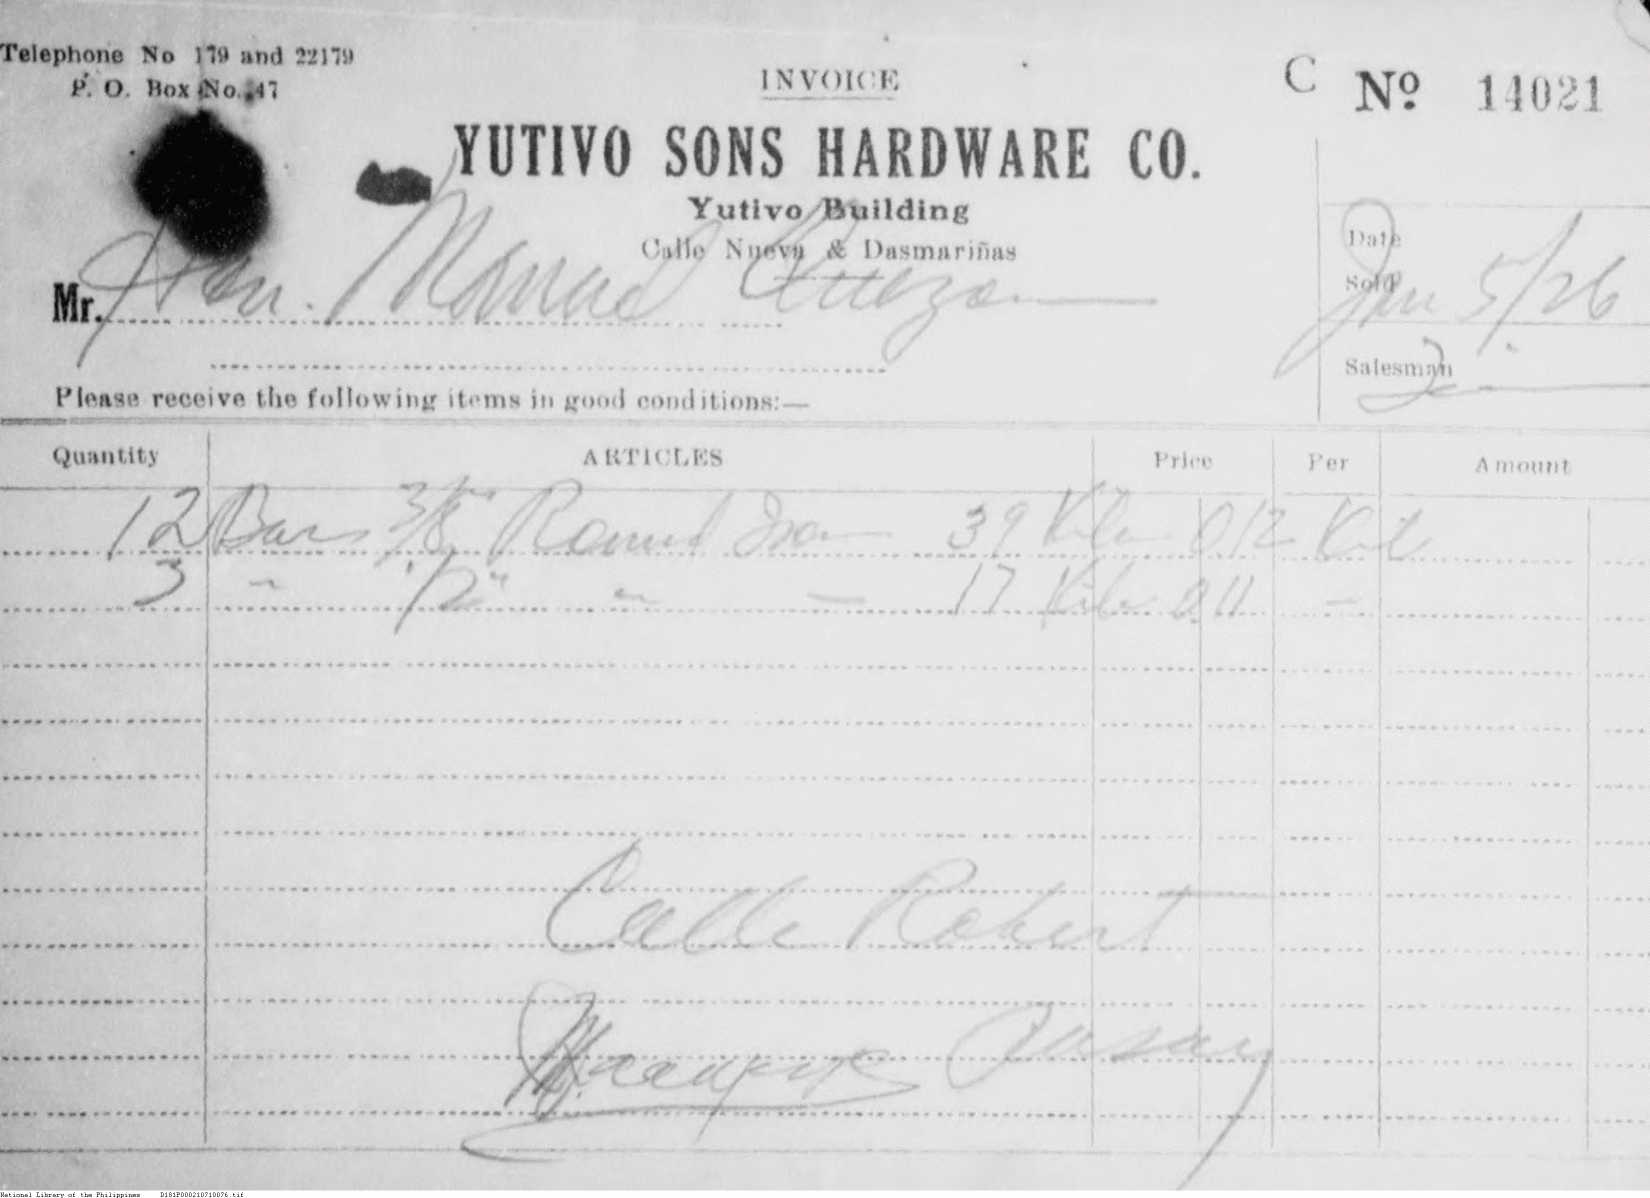 Telephone No 179 and 22179
P. O. Box No. 47
INVOICE
C No 14021
YUTIVO SONS HARDWARE CO.
Yutivo Building
Calle Nueva & Dasmariñas
Mr. Hon. Manuel Quezon
Date Sold Jan 5/26
Salesman
Please receive the following items in good conditions:—
Quantity ARTICLES Price Per Amount
12 Bars 3/8" Round Iron 39 Kilo 012 Kilo
3 " 1/2" " — 17 Kilo 011 —
Calle Robert
Pasay
National Library of the Philippines D181P000210710076.tif